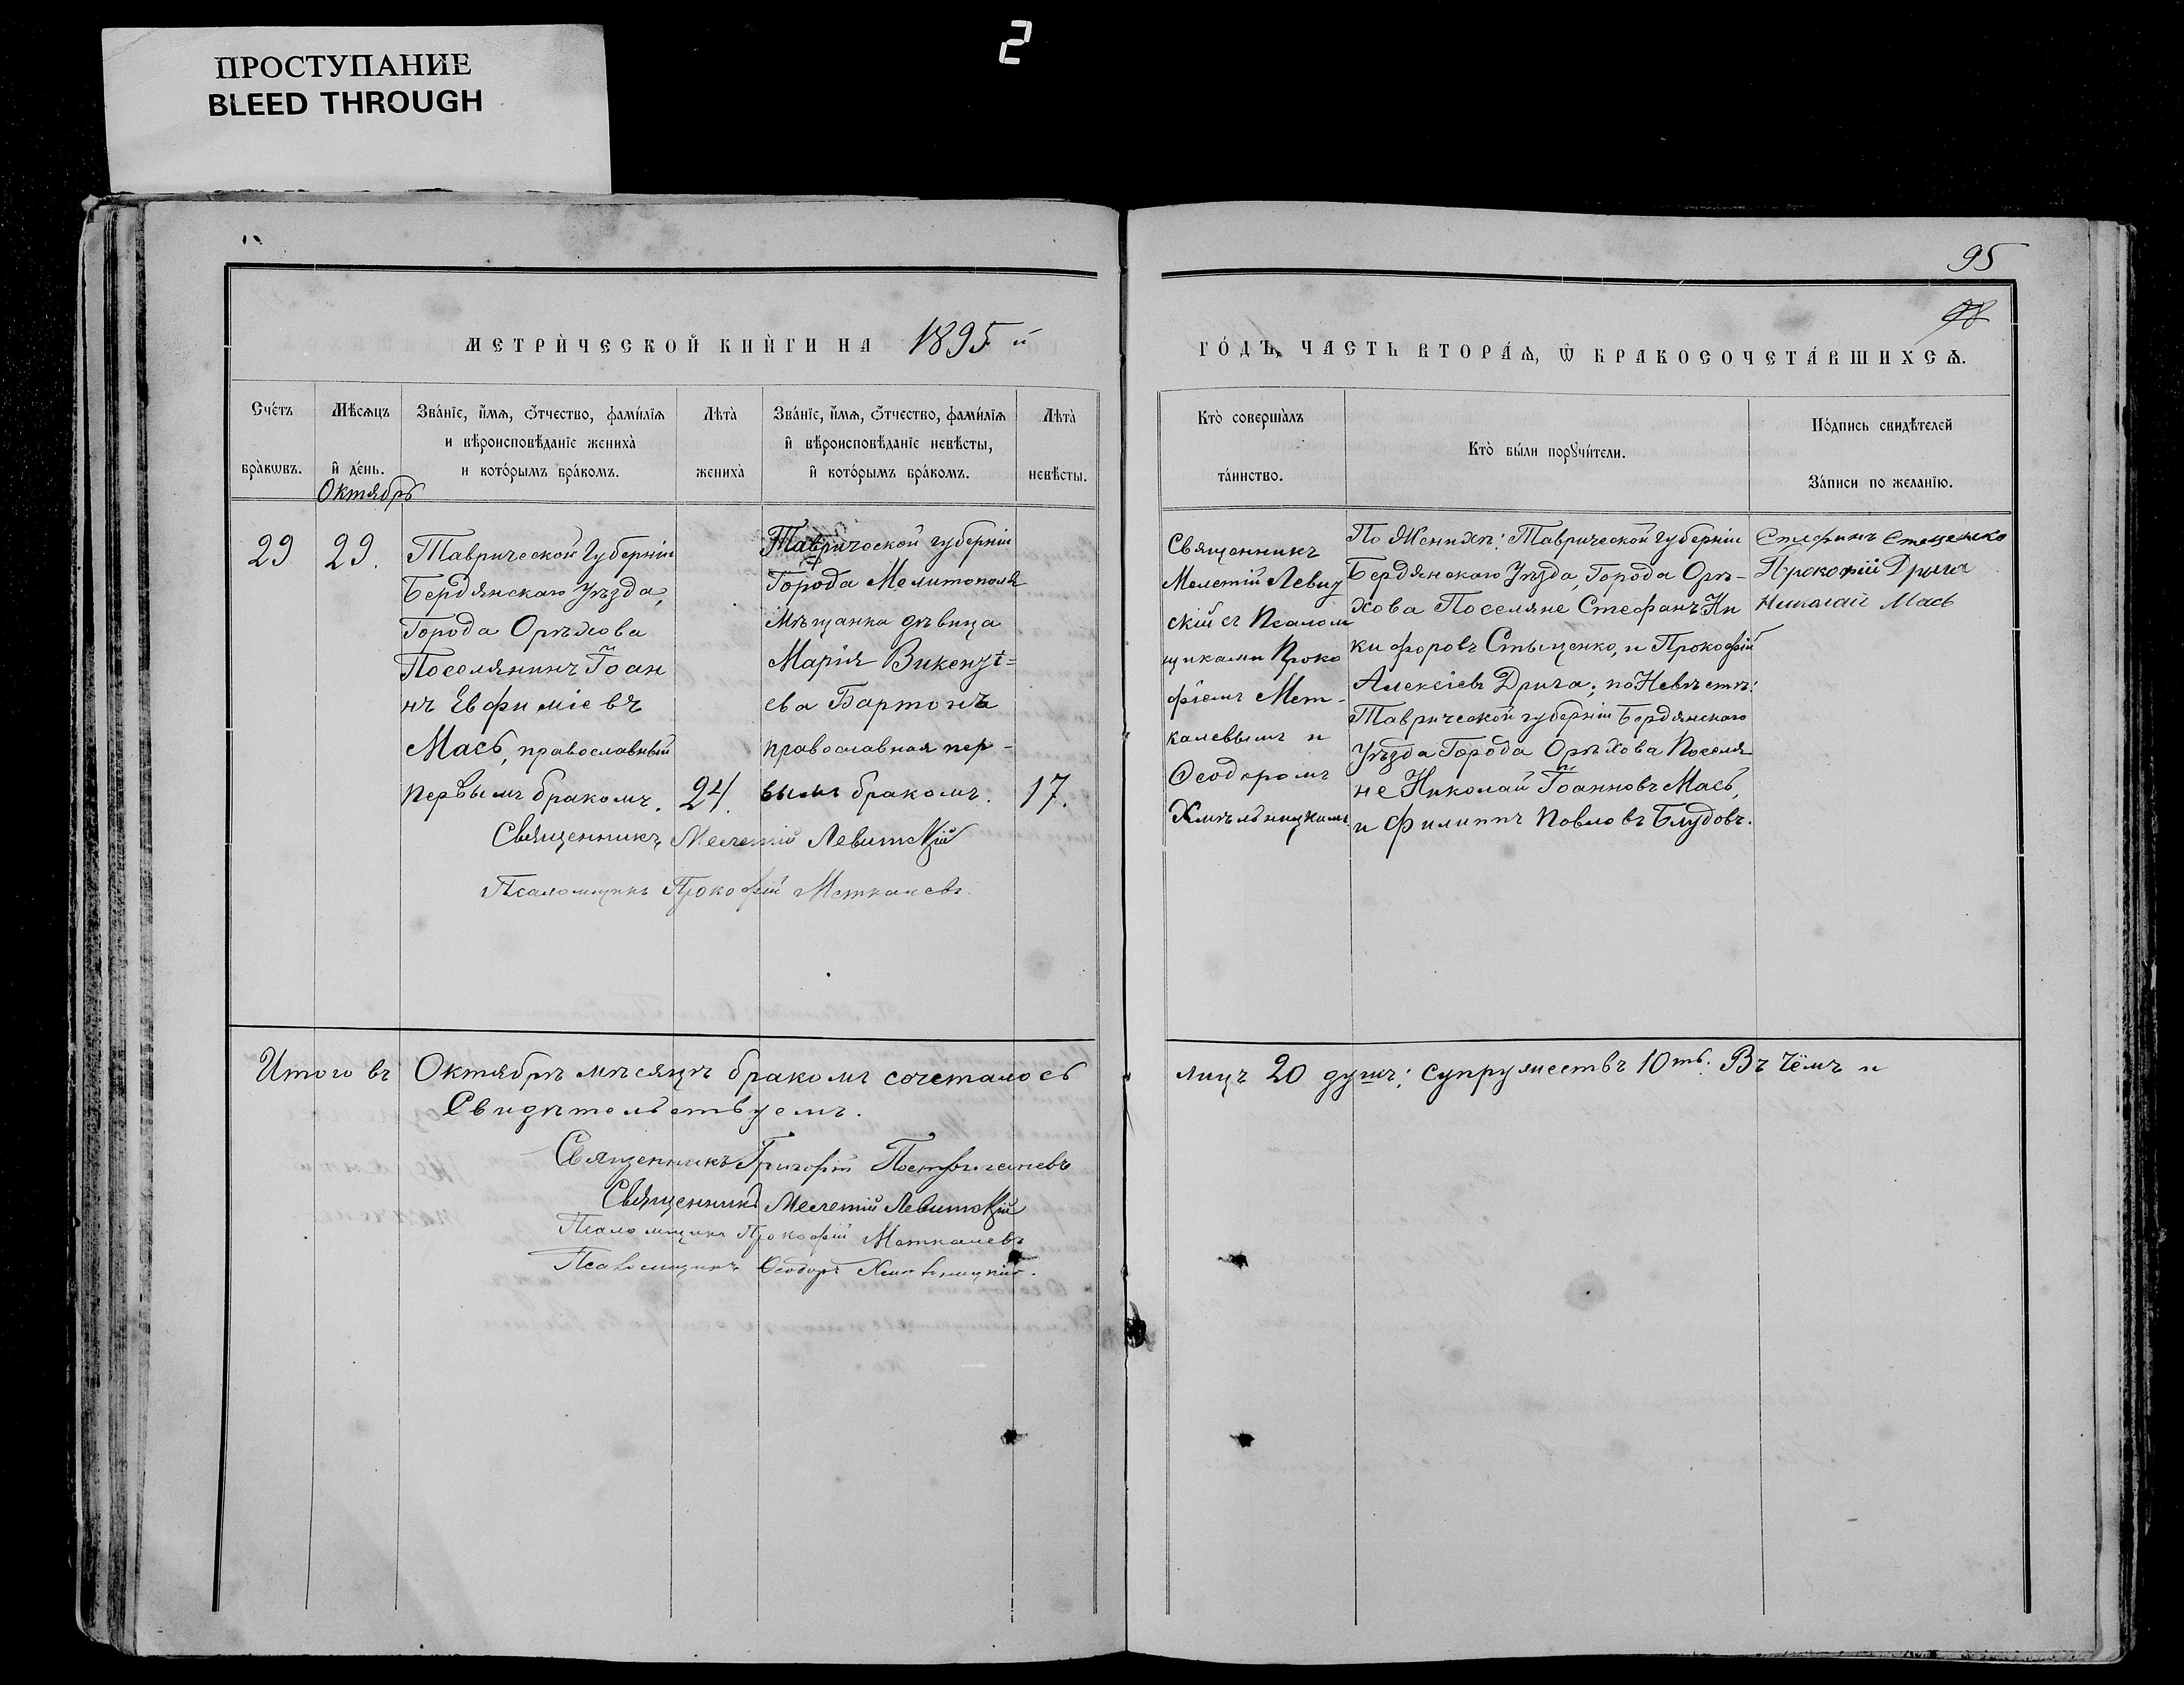 ПРОСТУПАНИЕ
BLEED THROUGH
2
95
МЕТРИ́ЧЕСКОЙ КНИ́ГИ НА 1895 й
ГО́ДЪ, ЧАСТЬ ВТОРА́Ѧ, Ѿ БРАКОСОЧЕТА́ВШИХСѦ.
Сче́тъ
бра̀кѡвъ.
Мѣ́сѧцъ
и҆ де́нь.
Октябрь
Зва́нїе, и҆́мѧ, ѻ҆́тчество, фами́лїѧ
и вѣроисповѣ́данїе жениха̀
и кото́рымъ бра́комъ.
Лѣта̀
жениха̀
Зва́нїе, и҆́мѧ, ѻ҆́тчество, фами́лїѧ
и҆ вѣроисповѣ́данїе невѣ́сты,
и҆ кото́рымъ бра́комъ.
Лѣта̀
невѣ́сты.
Кто̀ соверша̀лъ
та́инство.
Кто̀ бы́ли порꙋчи́тели.
По́дпись свидѣ́телей
За́писи по жела́нїю.
29
29.
Таврической Губерніи
Бердянскаго Уѣзда,
Города Орѣхова
Поселянинъ Іоан
нъ Евфиміевъ
Мась, православный
первымъ бракомъ.
24.
Таврической губерніи
Города Мелитополя
Мѣщанка дѣвица
Марія Викенті=
ева Бартонъ
православная пер-
вымъ бракомъ.
17.
Священникъ Мелетій Левитскій
Псаломщикъ Прокофій Меткалевъ
Священникъ
Мелетій Левит
скій съ Псалом
щиками Проко
фіемъ Мет-
калевымъ и
Ѳеодоромъ
Хмѣльницкимъ.
По Женихѣ: Таврической губерніи
Бердянскаго Уѣзда, Города Орѣ-
хова Поселяне Стефанъ Ни
кифоровъ Стыценко, и Прокофій
Алексіевъ Дрига; по Невѣстѣ:
Таврической губерніи Бердянскаго
Уѣзда Города Орѣхова Поселя
не Николай Іоанновъ Мась,
и Филиппъ Павловъ Блудовъ.
Стефанъ Стеценко
Прокофій Дрыга
Николай Мась
Итого въ Октябрѣ мѣсяцѣ бракомъ сочеталось
лицъ 20 душъ; супружествъ 10ть. Въ чёмъ и
Свидѣтельствуемъ.
Священникъ Григорій
Священникъ Мелетій Левитскій
Псаломщикъ Прокофій Меткалевъ
Псаломщикъ Ѳеодоръ Хмѣльницкій.